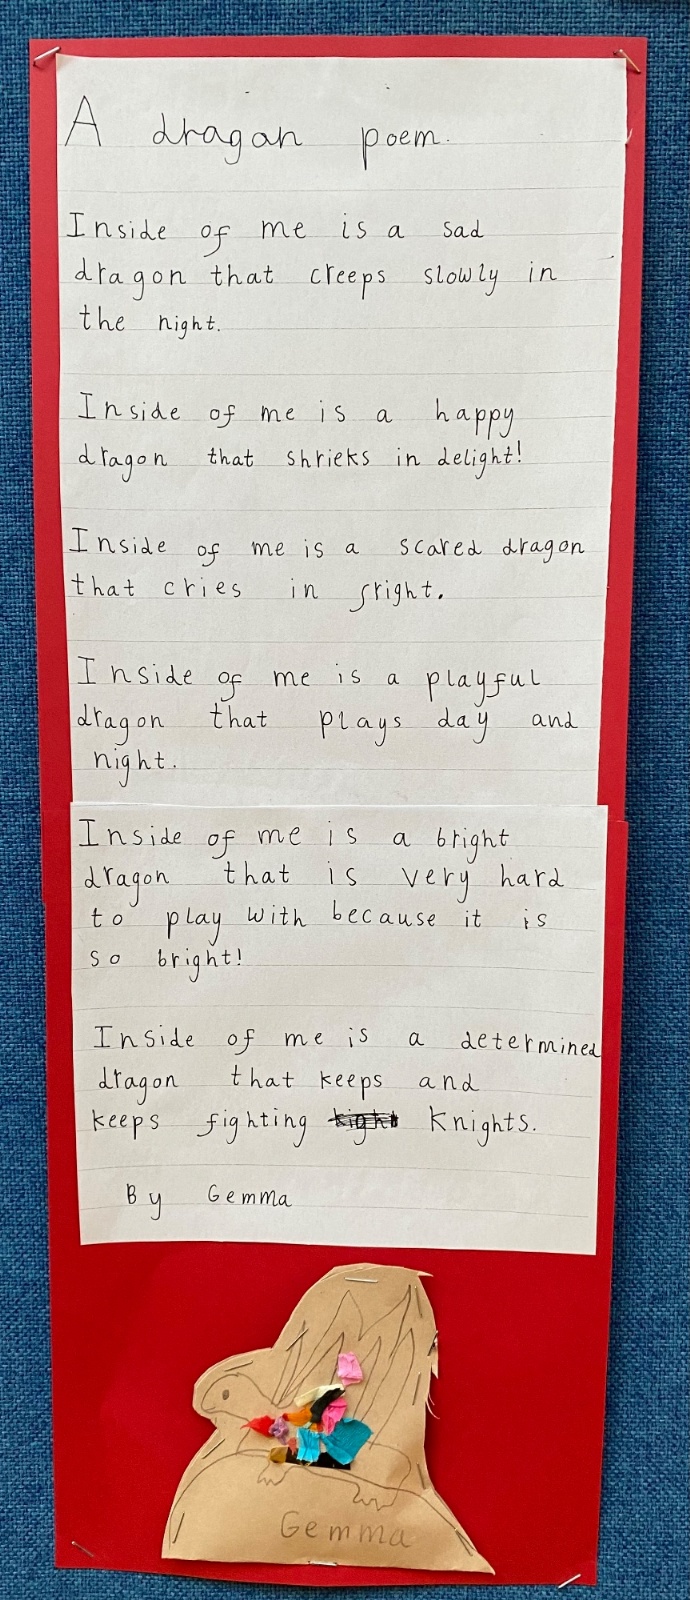 A dragan poem.
Inside of me is a sad
dragon that creeps slowly in
the night.
Inside of me is a happy
dragon that shrieks in delight!
Inside of me is a scared dragon
that cries in fright.
Inside of me is a playful
dragon that plays day and
night.
Inside of me is a bright
dragon that is very hard
to play with because it is
so bright!
Inside of me is a determined
dragon that keeps and
keeps fighting Knights.
By Gemma
Gemma